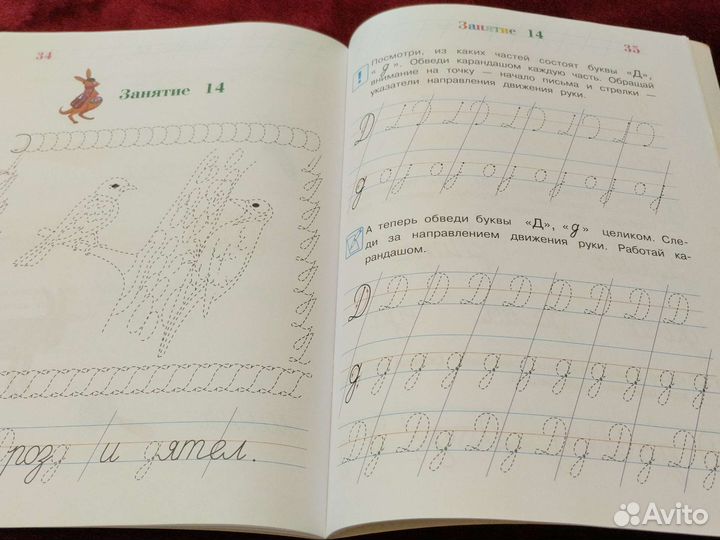 34
Занятие 14
Дрозд и дятел.
Занятие 14
35
Посмотри, из каких частей состоят буквы «Д»,
«д». Обведи карандашом каждую часть. Обращай
внимание на точку — начало письма и стрелки —
указатели направления движения руки.
Д
д
А теперь обведи буквы «Д», «д» целиком. Сле-
ди за направлением движения руки. Работай ка-
рандашом.
Д Д Д Д Д Д Д Д
д д д д д д д д д д
Д д Д д Д д Д д Д д Д д
Avito